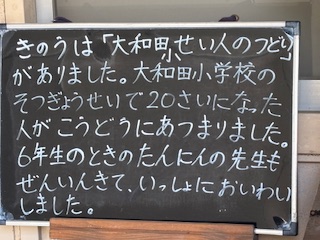 きのうは「大和田小せい人のつどい」
がありました。大和田小学校の
そつぎょうせいで20さいになった
人がこうどうにあつまりました。
6年生のときのたんにんの先生も
ぜんいんきて、いっしょにおいわい
しました。